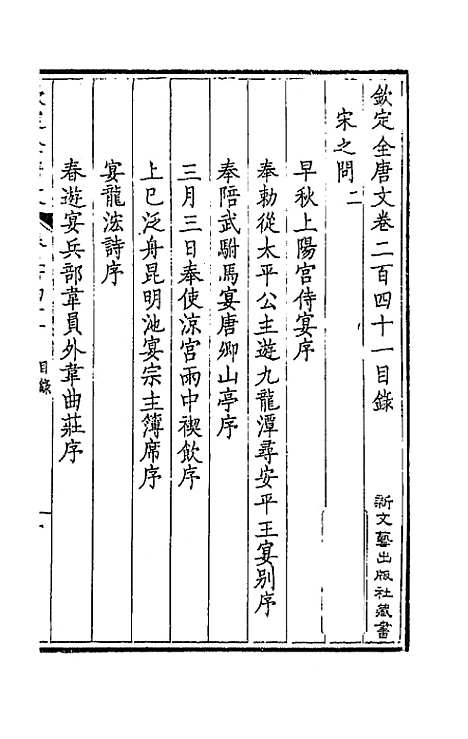 欽定全唐文卷二百四十一目錄
新文藝出版社藏書
宋之問二
早秋上陽宮侍宴序
奉勅從太平公主遊九龍潭尋安平王宴别序
奉陪武駙馬宴唐卿山亭序
三月三日奉使涼宮雨中禊飲序
上巳泛舟昆明池宴宗主簿席序
宴龍泓詩序
春遊宴兵部韋員外韋曲莊序
目錄
一